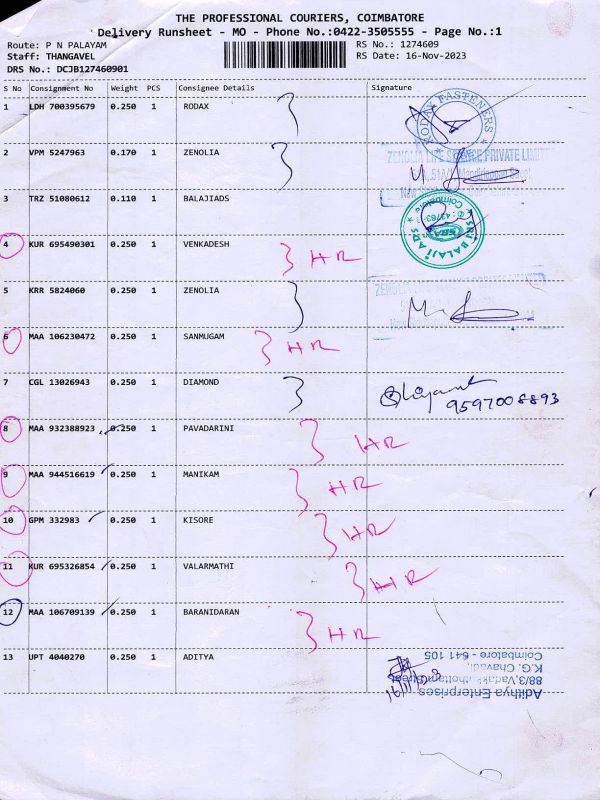 THE PROFESSIONAL COURIERS, COIMBATORE
Delivery Runsheet - MO - Phone No.:0422-3505555 - Page No.:1
Route: P N PALAYAM RS No.: 1274609
Staff: THANGAVEL RS Date: 16-Nov-2023
DRS No.: DCJB127460901
S No Consignment No Weight PCS Consignee Details Signature
1 LDH 700395679 0.250 1 RODAX
RODAX FASTENERS
2 VPM 5247963 0.170 1 ZENOLIA
ZENOLIA LIFE SCIENCE PRIVATE LIMIT
3 TRZ 51080612 0.110 1 BALAJIADS
SRI BALAJI ADS
Coimbatore
4 KUR 695490301 0.250 1 VENKADESH HR
5 KRR 5824060 0.250 1 ZENOLIA
6 MAA 106230472 0.250 1 SANMUGAM HR
7 CGL 13026943 0.250 1 DIAMOND
9597008893
8 MAA 932388923 0.250 1 PAVADARINI HR
9 MAA 944516619 0.250 1 MANIKAM HR
10 GPM 332983 0.250 1 KISORE HR
11 KUR 695326854 0.250 1 VALARMATHI HR
12 MAA 106709139 0.250 1 BARANIDARAN HR
13 UPT 4040270 0.250 1 ADITYA
Adithya Enterprises
88/3, Vadakkuthottam Street
K.G. Chavadi,
Coimbatore - 641 105